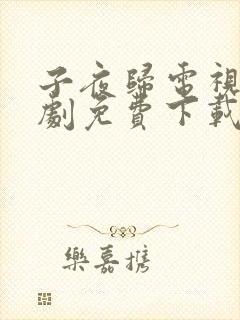 子夜歸電視
劇免費下載
樂嘉携